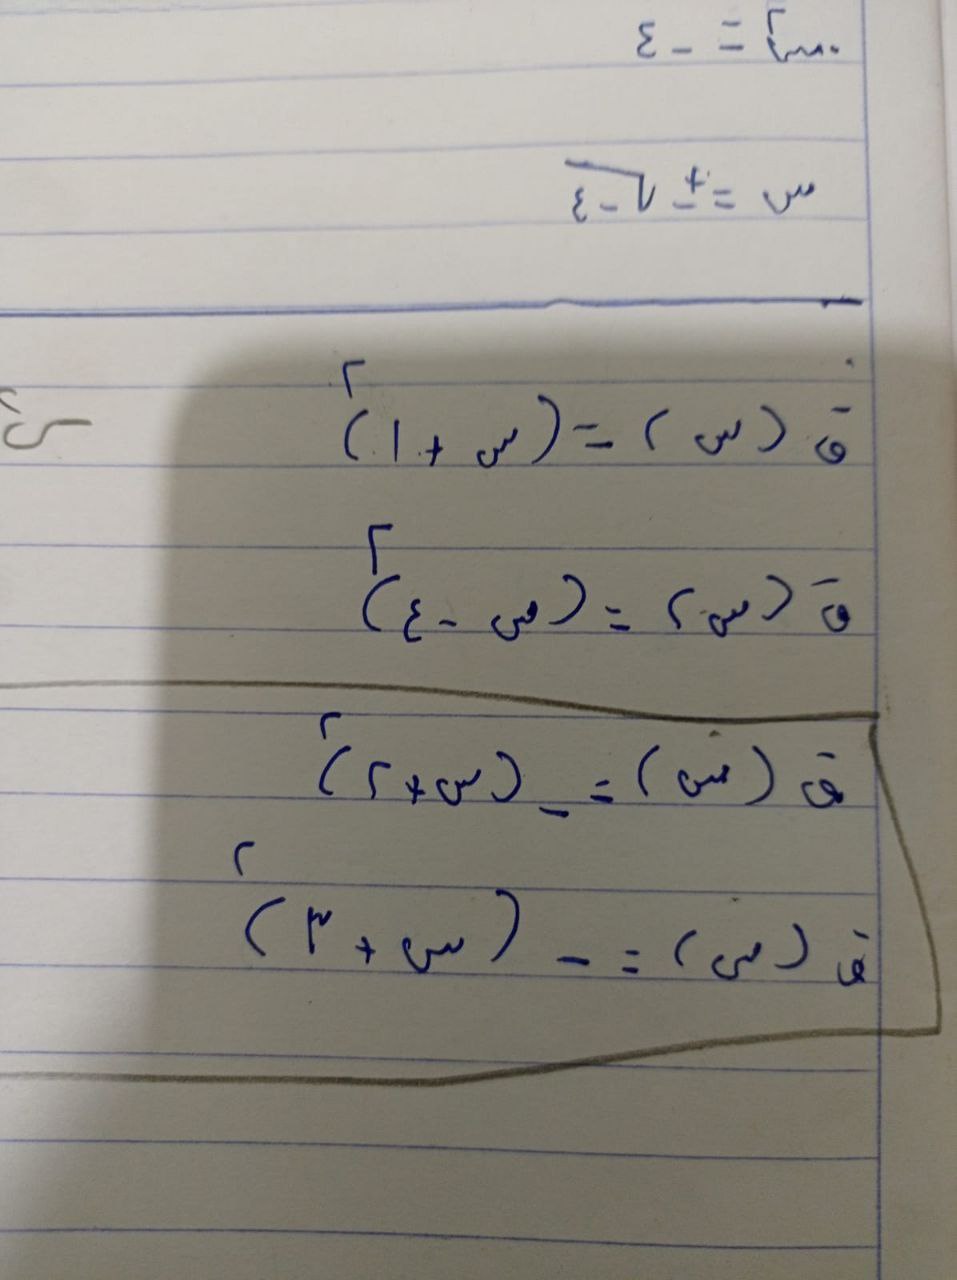 س٢ = -٤
س = ± √-٤
ق (س) = (س + ١)٢
ق (س) = (س - ٤)٢
ق (س) = - (س + ٢)٢
ق (س) = - (س + ٣)٢